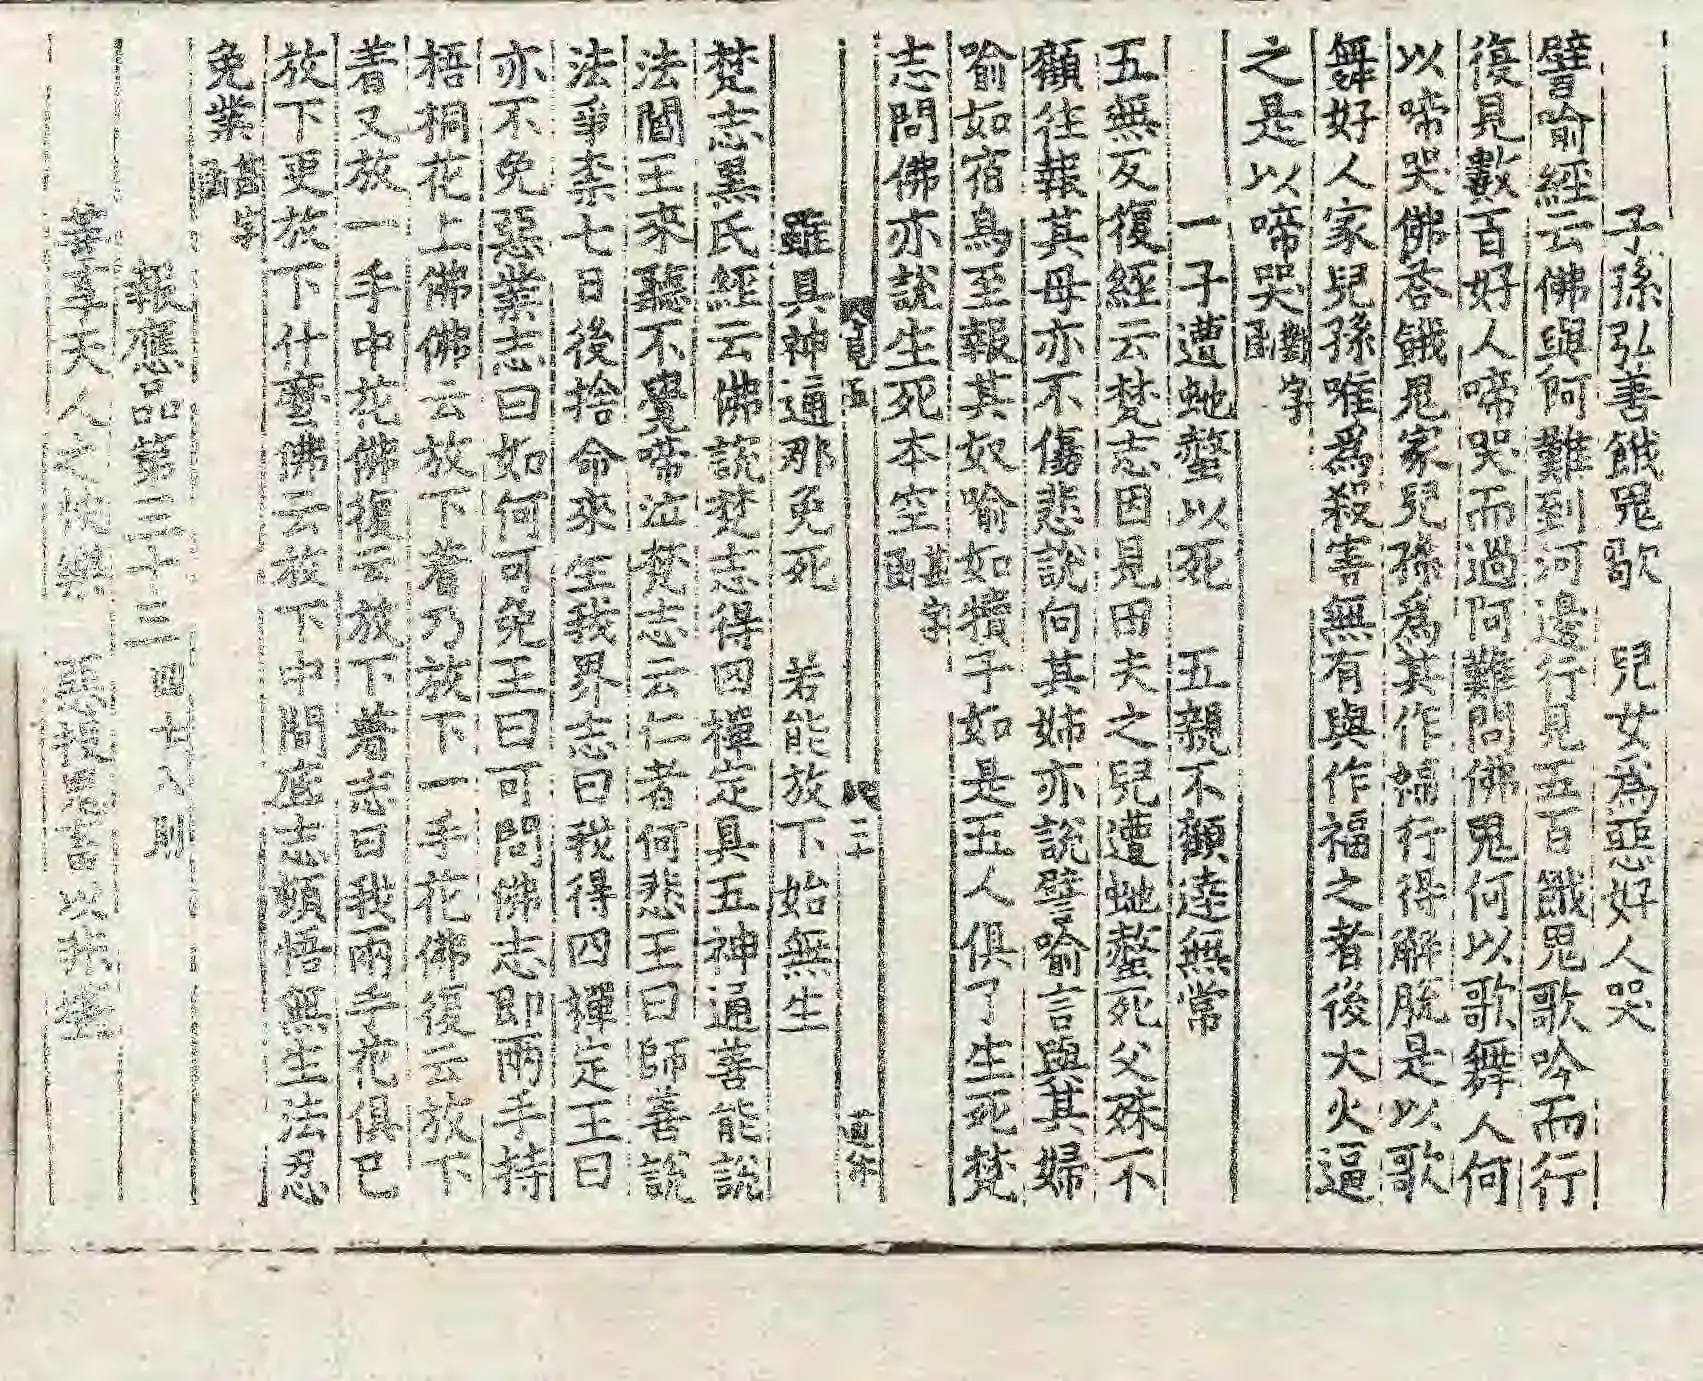 子孫弘善餓鬼歌　兒女爲惡好人哭
譬喻經云佛與阿難到河邊行見五百餓鬼歌吟而行
復見數百好人啼哭而過阿難問佛鬼何以歌舞人何
以啼哭佛荅餓鬼家兒孫爲其作福行得解脫是以歌
舞好人家兒孫唯爲殺害無有與作福之者後大火逼
之是以啼哭
一子遭虵螫以死　五親不顧達無常
五無反復經云梵志因見田夫之兒遭虵螫死父殊不
顧往報其母亦不傷悲說向其姉亦說譬喻言與其婦
喻如宿鳥至報其奴喻如犢子如是五人俱了生死梵
志問佛亦說生死本空
雖具神通那免死　若能放下始無生
梵志黑氏經云佛說梵志得四禪定具五神通善能說
法閻王來聽不覺啼泣梵志云仁者何悲王曰師善說
法爭柰七日後捨命來生我界志曰我得四禪定王曰
亦不免惡業志曰如何可免王曰可問佛志即兩手持
梧桐花上佛佛云放下著乃放下一手花佛復云放下
着又放一手中花佛復云放下著志曰我兩手花俱已
放下更放下什麼佛云放下中間底志頓悟無生法忍
免業
報應品第三十三 四廿八則